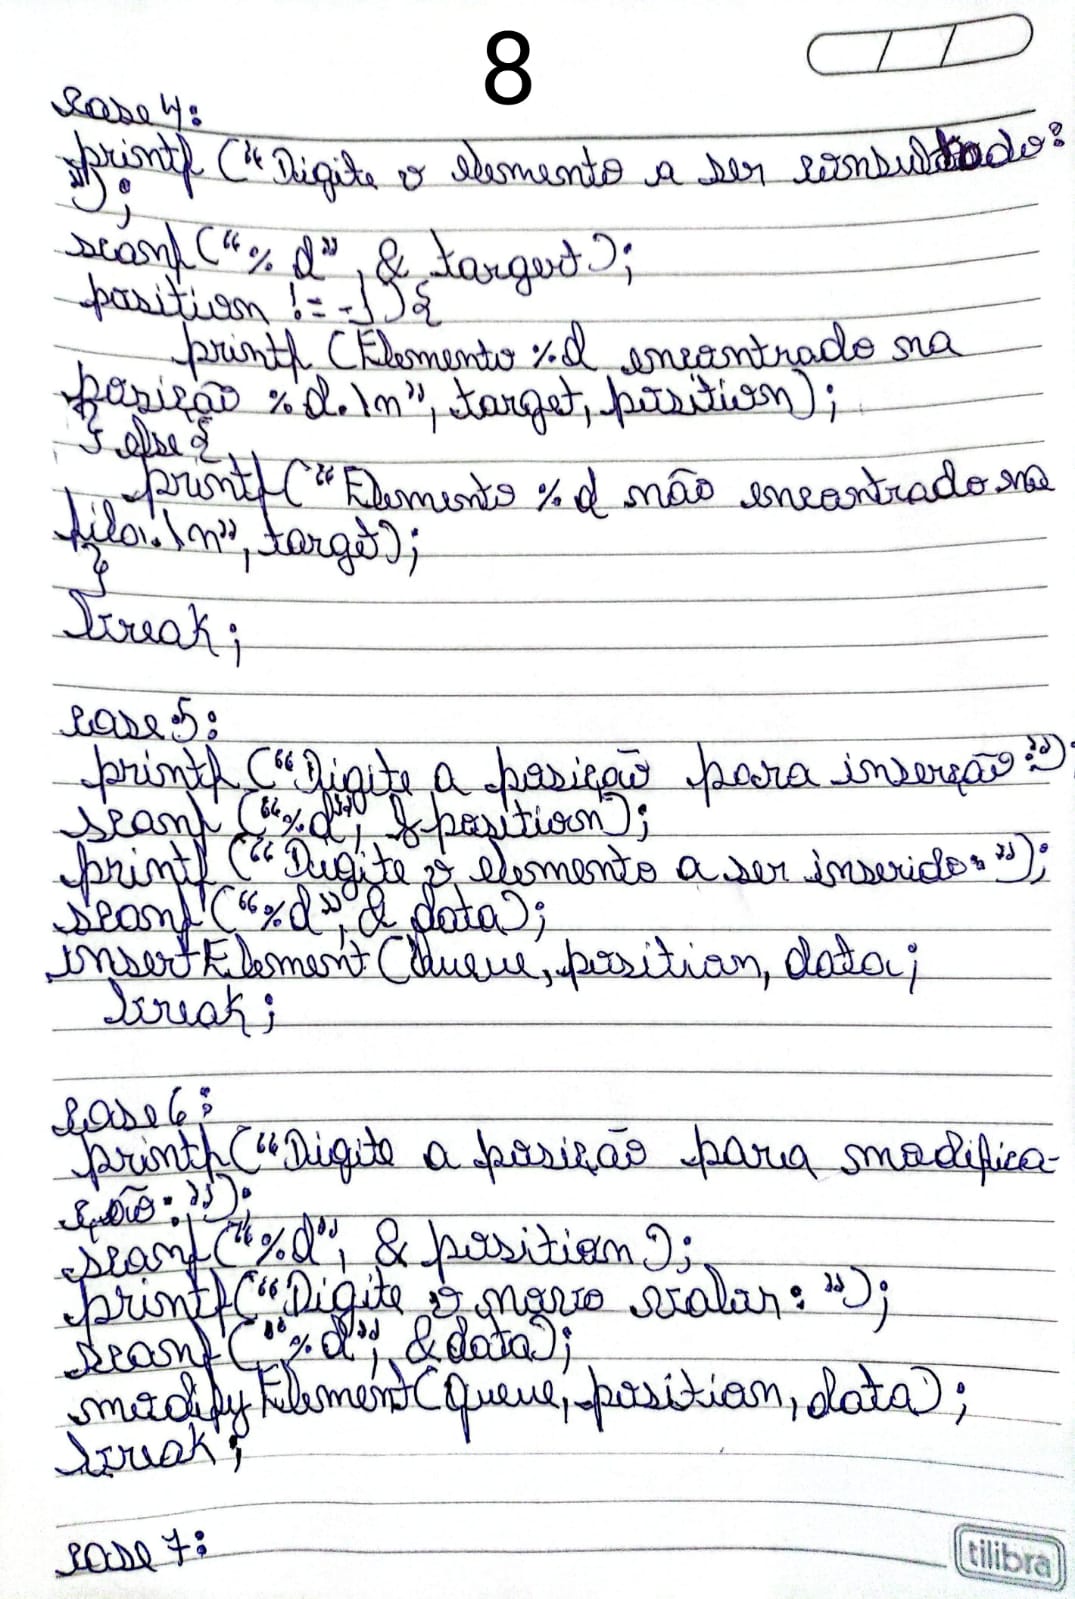 8
case 4:
printf ("Digite o elemento a ser consultado:
");
scanf ("%d", & target);
position != -1) {
printf (Elemento %d encontrado na
posição %d.\n", target, position);
} else {
printf ("Elemento %d não encontrado na
fila.\n", target);
}
break;
case 5:
printf ("Digite a posição para inserção:")
scanf ("%d", &position);
printf ("Digite o elemento a ser inserido:");
scanf ("%d", & data);
insertElement (queue, position, data;
break;
case 6:
printf ("Digite a posição para modifica-
ção:");
scanf ("%d", & position);
printf ("Digite o novo valor: ");
scanf ("%d", &data);
modifyElement (queue, position, data);
break;
case 7:
tilibra